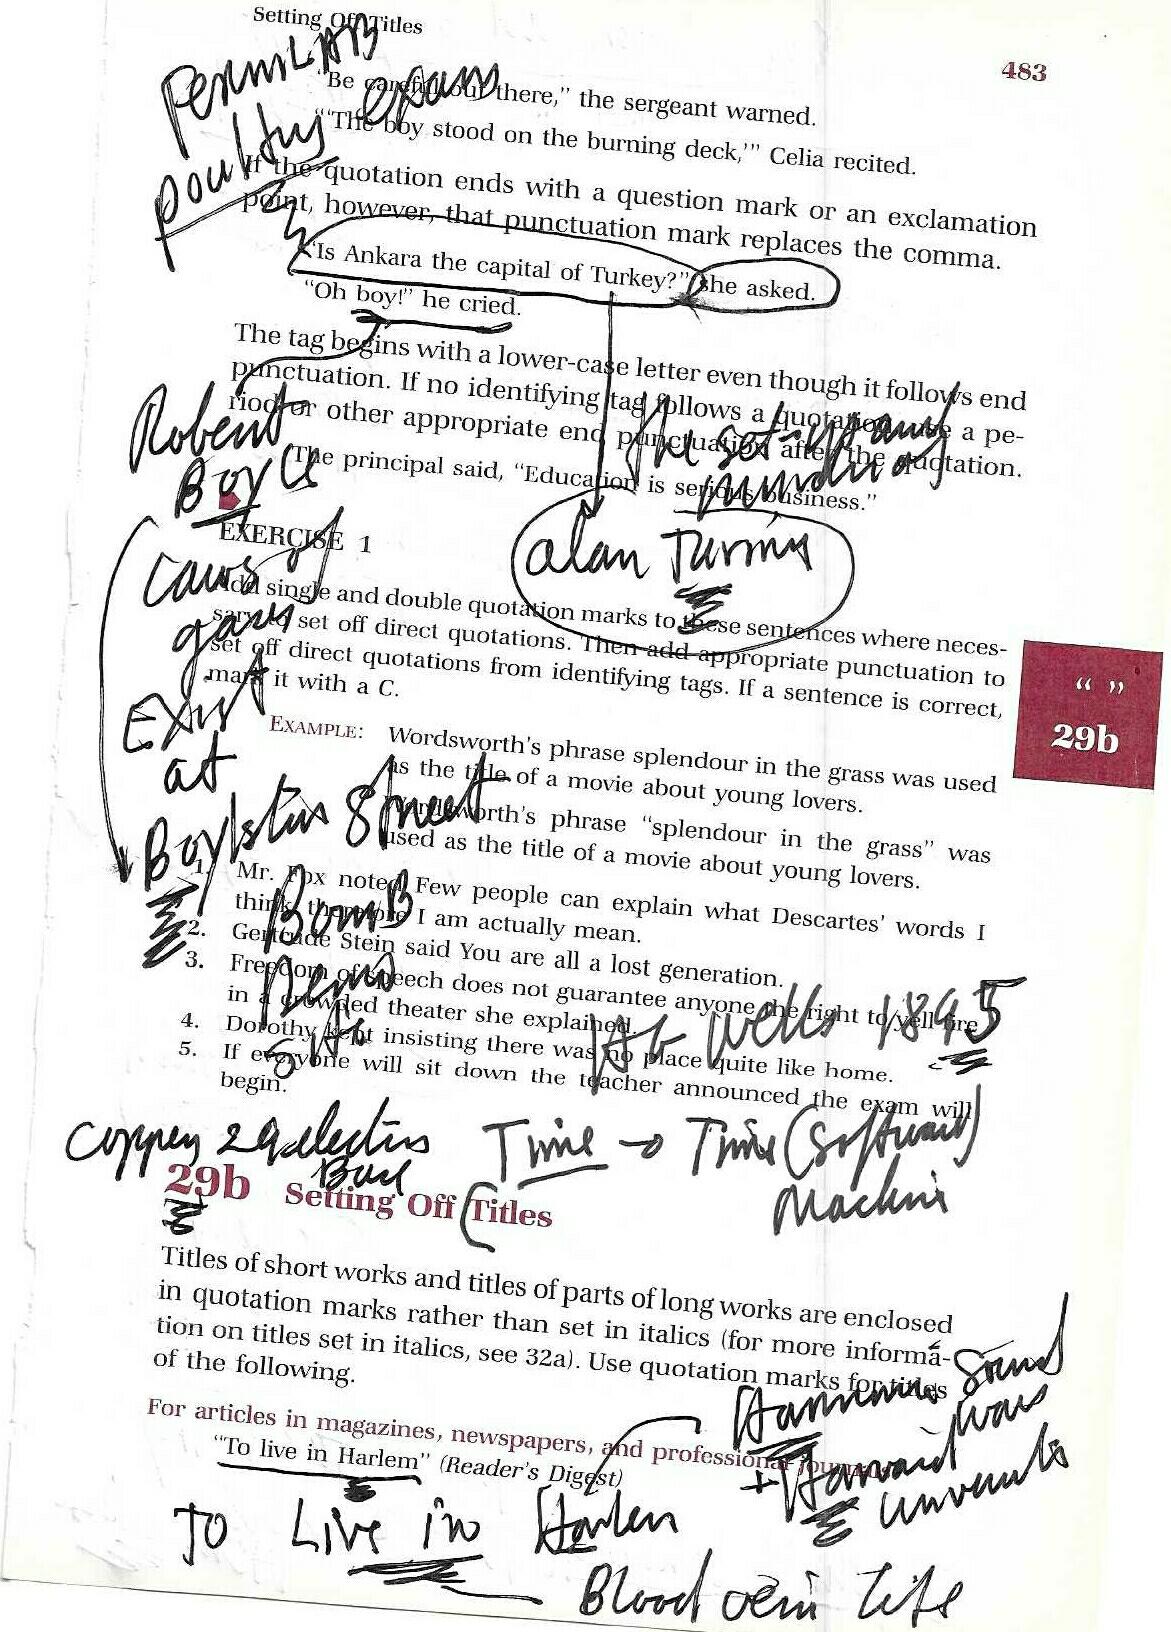 Setting Off Titles
483
PennLAB
poultry exam
"Be careful out there," the sergeant warned.
"'The boy stood on the burning deck,'" Celia recited.
If the quotation ends with a question mark or an exclamation
point, however, that punctuation mark replaces the comma.
"Is Ankara the capital of Turkey?" she asked.
"Oh boy!" he cried.
The tag begins with a lower-case letter even though it follows end
punctuation. If no identifying tag follows a quotation, use a pe-
riod or other appropriate end punctuation after the quotation.
The principal said, "Education is serious business."
Robert
Boyle
Laws of
gases
Exist
at
Boylston Street
Bomb
The set-up and
alan Turing
EXERCISE 1
Add single and double quotation marks to these sentences where neces-
sary to set off direct quotations. Then add appropriate punctuation to
set off direct quotations from identifying tags. If a sentence is correct,
mark it with a C.
“ ”
29b
EXAMPLE: Wordsworth's phrase splendour in the grass was used
as the title of a movie about young lovers.
Wordsworth's phrase "splendour in the grass" was
used as the title of a movie about young lovers.
1. Mr. Fox noted Few people can explain what Descartes' words I
think, therefore I am actually mean.
2. Gertrude Stein said You are all a lost generation.
3. Freedom of speech does not guarantee anyone the right to yell fire
in a crowded theater she explained.
4. Dorothy kept insisting there was no place quite like home.
5. If everyone will sit down the teacher announced the exam will
begin.
HG Wells 1895
Copper 29 electrons
Time → Time (Software)
Machine
29b Setting Off Titles
Titles of short works and titles of parts of long works are enclosed
in quotation marks rather than set in italics (for more informa-
tion on titles set in italics, see 32a). Use quotation marks for titles
of the following.
For articles in magazines, newspapers, and professional journals
"To live in Harlem" (Reader's Digest)
Sound
+ Harvard
University
To Live in Harlem
Blood vein life